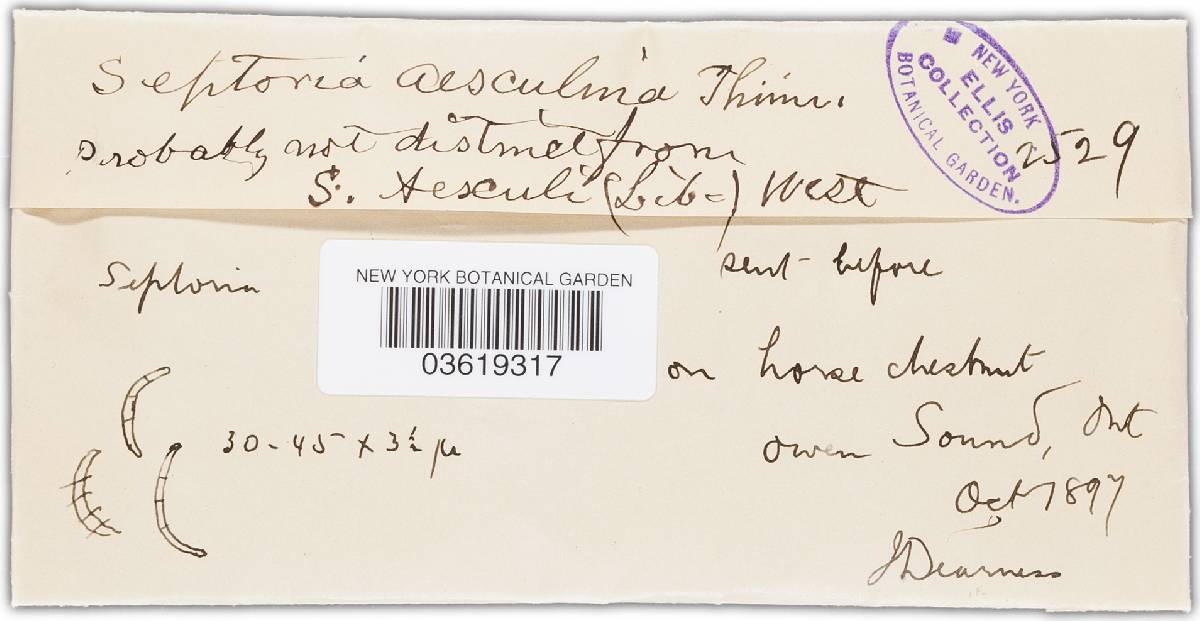 Septoria aesculina Thüm.
probably not distinct from
S. Aesculi (Lib-) West
2529
NEW YORK
BOTANICAL GARDEN.
ELLIS
COLLECTION
Septoria
sent before
NEW YORK BOTANICAL GARDEN
03619317
on horse chestnut
30-45 x 3½ µ
Owen Sound, Ont
Oct 1897
J Dearness